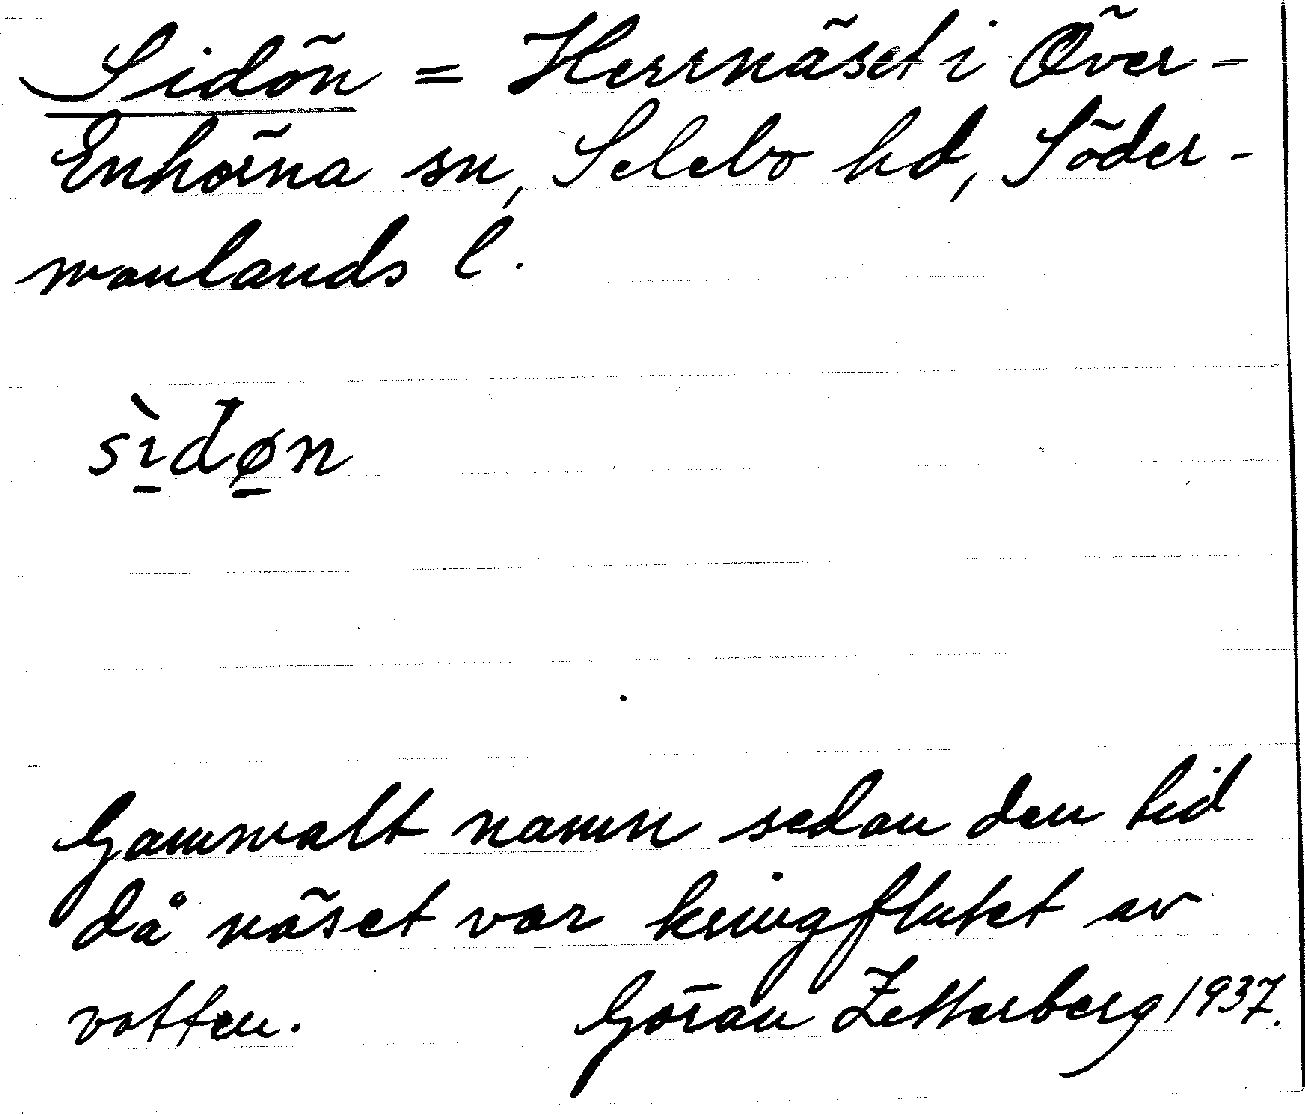 Sidön = Herrnäset i Över-
Enhörna sn, Selebo hd, Söder-
manlands l.
sìdøn
Gammalt namn sedan den tid
då näset var kringflutet av
vatten. Göran Zetterberg 1937.